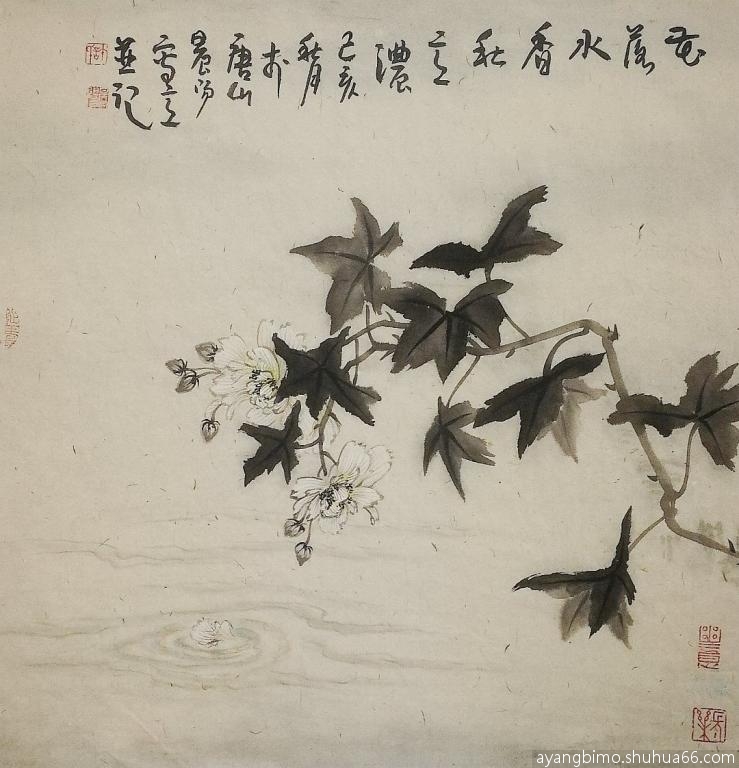 花
落
水
香
秋
意
濃
己亥
秋月
於
唐山
晨陽
寫意
並記
ayangbimo.shuhua66.com